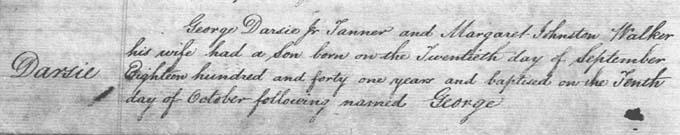 George Darsie Jr Tanner and Margaret Johnston Walker
his wife had a Son born on the Twentieth day of September
Darsie
Eighteen hundred and forty one years and baptised on the Tenth
day of October following named George